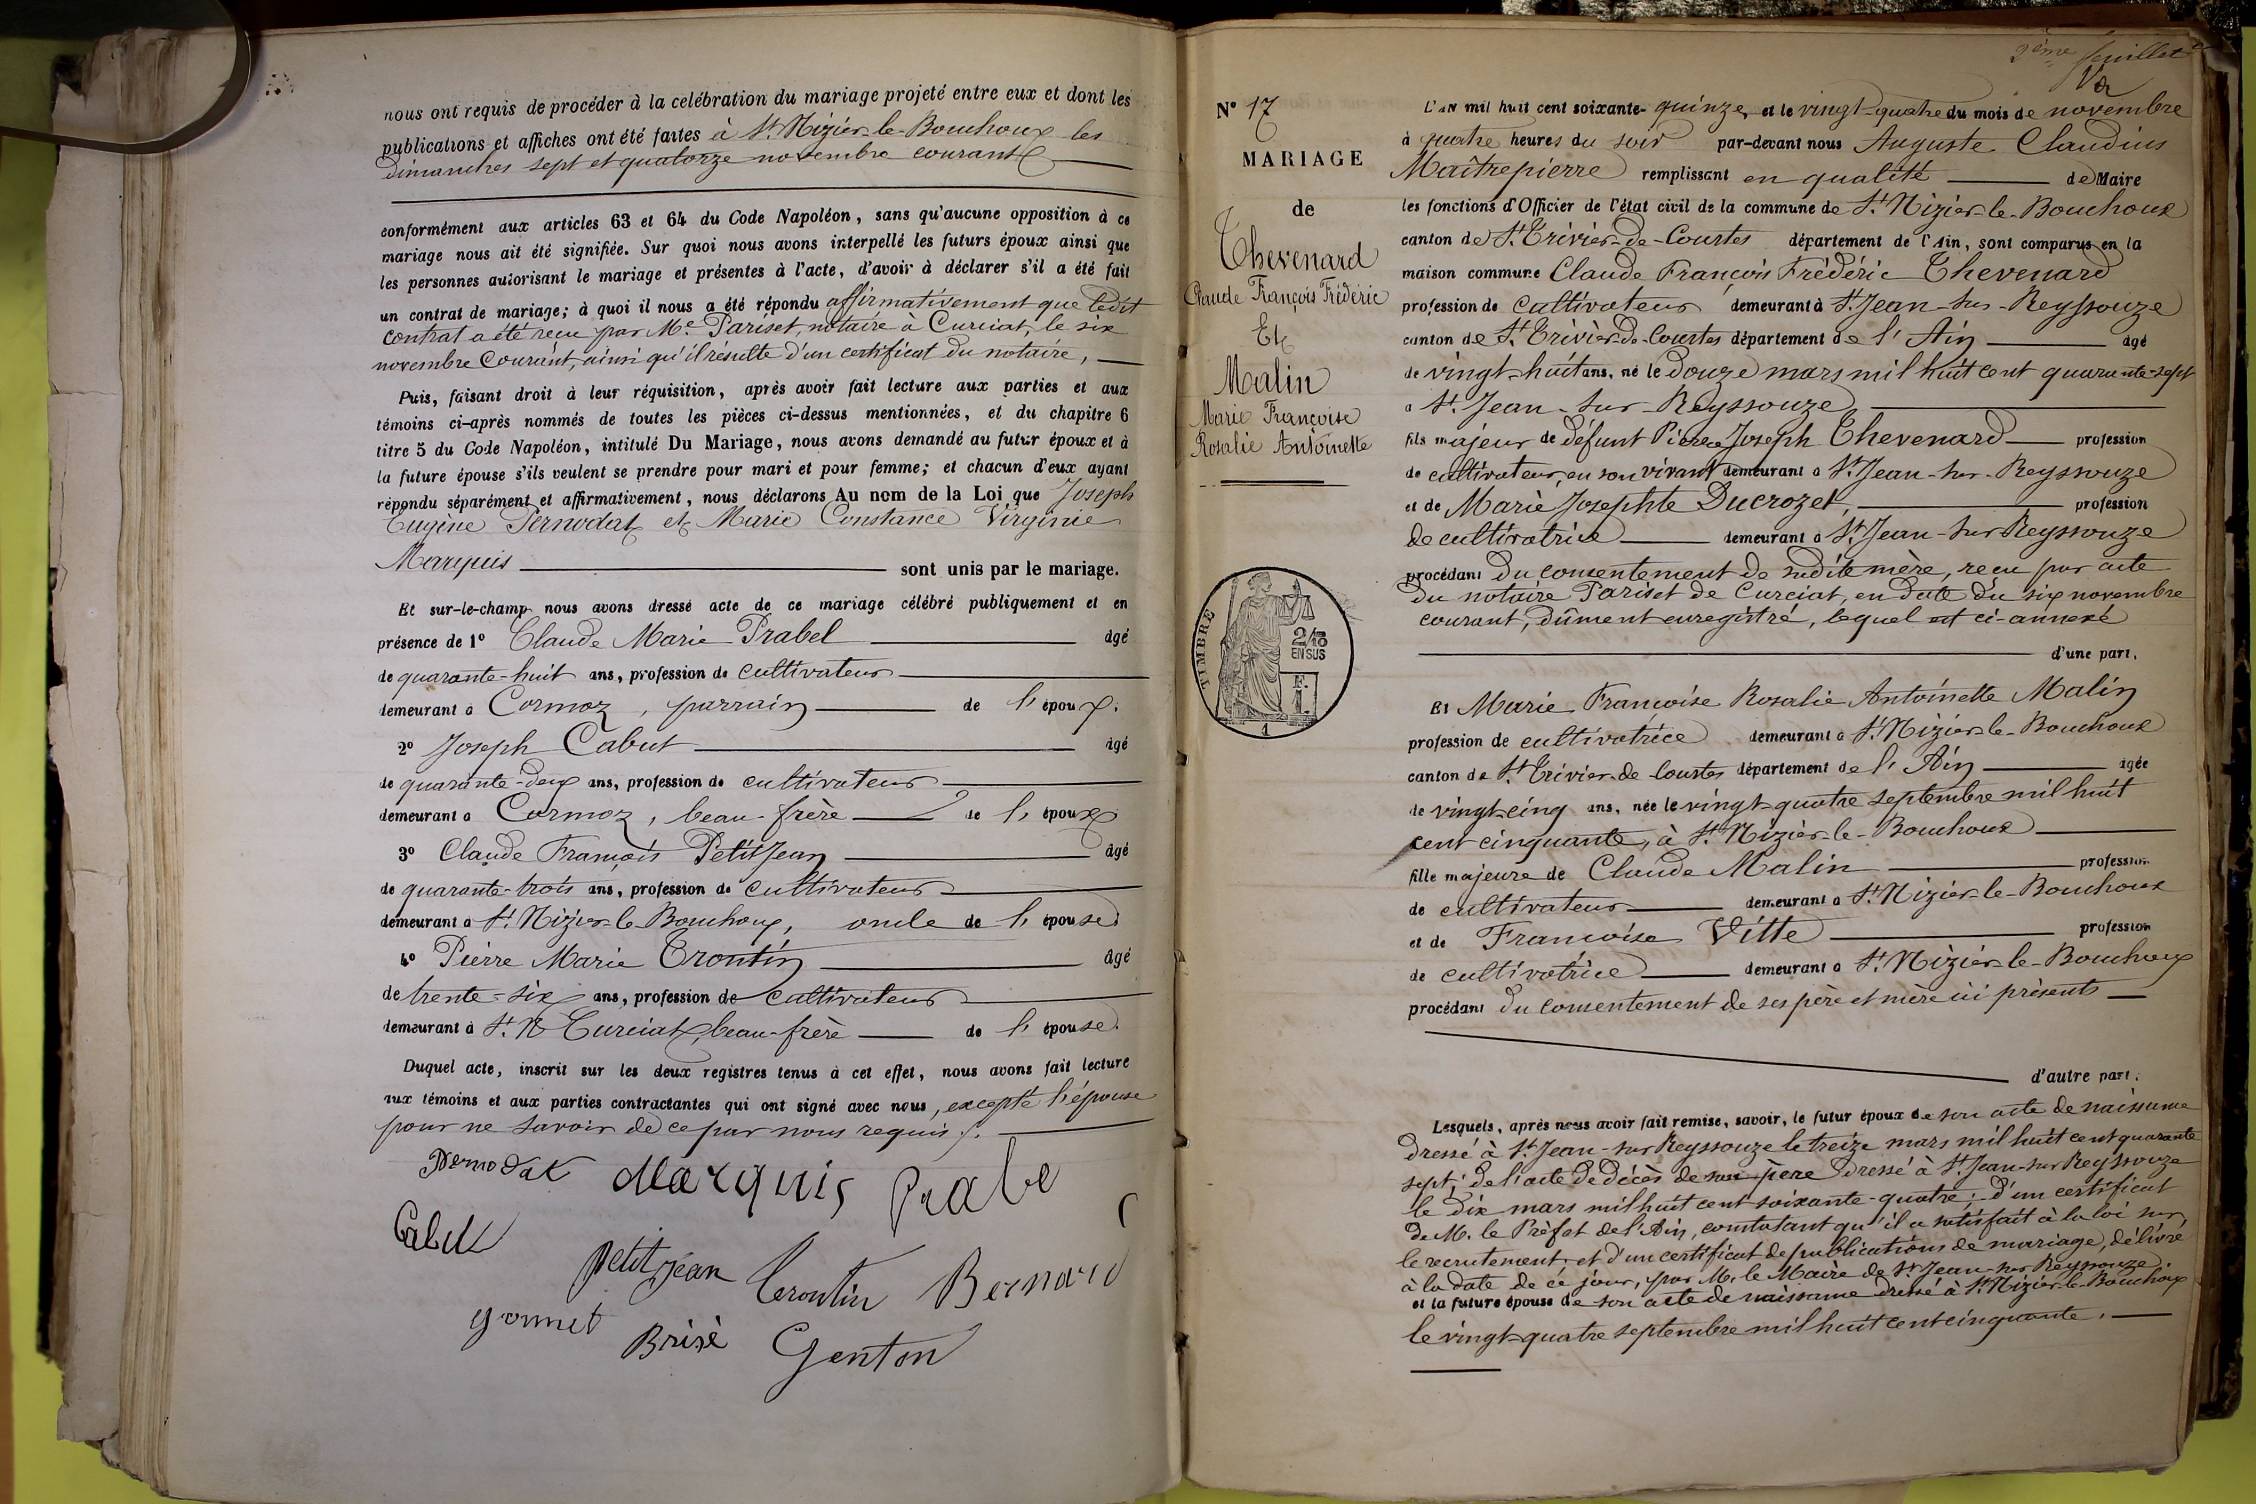 nous ont requis de procéder à la celébration du mariage projeté entre eux et dont les
publications et affiches ont été faites à St. Nizier-le-Bouchoux les
dimanches sept et quatorze novembre courant
conformément aux articles 63 et 64 du Code Napoléon, sans qu'aucune opposition à ce
mariage nous ait été signifiée. Sur quoi nous avons interpellé les futurs époux ainsi que
les personnes autorisant le mariage et présentes à l'acte, d'avoir à déclarer s'il a été fait
un contrat de mariage; à quoi il nous a été répondu affirmativement que ledit
contrat a été reçu par Me. Pariset, notaire à Curciat, le six
novembre courant, ainsi qu'il résulte d'un certificat du notaire,
Puis, faisant droit à leur réquisition, après avoir fait lecture aux parties et aux
témoins ci-après nommés de toutes les pièces ci-dessus mentionnées, et du chapitre 6
titre 5 du Code Napoléon, intitulé Du Mariage, nous avons demandé au futur époux et à
la future épouse s'ils veulent se prendre pour mari et pour femme; et chacun d'eux ayant
répondu séparément et affirmativement, nous déclarons Au nom de la Loi que Joseph
Eugène Pernodat et Marie Constance Virginie
Marquis sont unis par le mariage.
Et sur-le-champ nous avons dressé acte de ce mariage célébré publiquement et en
présence de 1° Claude Marie Prabel âgé
de quarante-huit ans, profession de cultivateur
demeurant à Cormoz, parrain de l'époux.
2° Joseph Cabut âgé
de quarante-deux ans, profession de cultivateur
demeurant à Cormoz, beau-frère de l'époux
3° Claude François Petitjean âgé
de quarante-trois ans, profession de cultivateur
demeurant à St. Nizier-le-Bouchoux, oncle de l'épouse.
4° Pierre Marie Trontin âgé
de trente-six ans, profession de cultivateur
demeurant à St. N Curciat, beau-frère de l'épouse.
Duquel acte, inscrit sur les deux registres tenus à cet effet, nous avons fait lecture
aux témoins et aux parties contractantes qui ont signé avec nous, excepté l'épouse
pour ne savoir de ce par nous requis.
Pernodat Marquis Prabel
Cabut
petitjean Trontin Bernard
gonnet Brisè Genton
2ème feuillet
N° 17
MARIAGE
de
Thevenard
Claude François Frédéric
Et
Malin
Marie Françoise
Rosalie Antoinette
TIMBRE
2/10
EN SUS
F.
1.
1
L'an mil huit cent soixante-quinze, et le vingt-quatre du mois de novembre
à quatre heures du soir par-devant nous Auguste Claudius
Maîtrepierre remplissant en qualité de Maire
les fonctions d'Officier de l'état civil de la commune de St. Nizier-le-Bouchoux
canton de St. Trivier-de-Courtes département de l'Ain, sont comparus en la
maison commune Claude François Frédéric Thevenard
profession de cultivateur demeurant à St. Jean-sur-Reyssouze
canton de St. Trivier-de-Courtes département de l'Ain âgé
de vingt-huit ans, né le douze mars mil huit cent quarante-sept
à St. Jean-sur-Reyssouze
fils majeur de défunt Pierre Joseph Thevenard profession
de cultivateur, en son vivant demeurant à St. Jean-sur-Reyssouze
et de Marie Josephte Ducrozet, profession
de cultivatrice demeurant à St. Jean-sur Reyssouze
procédant du consentement de sudite mère, reçu par acte
du notaire Pariset de Curciat, en date du six novembre
courant, dûment enregistré, lequel est ci-annexé
d'une part.
Et Marie Françoise Rosalie Antoinette Malin
profession de cultivatrice demeurant à St. Nizier-le-Bouchoux
canton de St. Trivier-de Courtes département de l'Ain âgée
de vingt-cinq ans, née le vingt-quatre septembre mil huit
cent cinquante, à St. Nizier-le-Bouchoux
fille majeure de Claude Malin profession
de cultivateur demeurant à St. Nizier-le-Bouchoux
et de Françoise Vitte profession
de cultivatrice demeurant à St. Nizier-le-Bouchoux
procédant du consentement de ses père et mère ici présents
d'autre part.
Lesquels, après nous avoir fait remise, savoir, le futur époux de son acte de naissance
dressé à St. Jean-sur Reyssouze le treize mars mil huit cent quarante
sept; de l'acte de décès de son père dressé à St. Jean-sur Reyssouze
le dix mars mil huit cent soixante-quatre; d'un certificat
de M. le Préfet de l'Ain, constatant qu'il a satisfait à la loi sur
le recrutement, et d'un certificat de publications de mariage, délivré
à la date de ce jour, par M. le Maire de St. Jean-sur Reyssouze.
et la future épouse de son acte de naissance dressé à St. Nizier-le-Bouchoux
le vingt-quatre septembre mil huit cent cinquante.